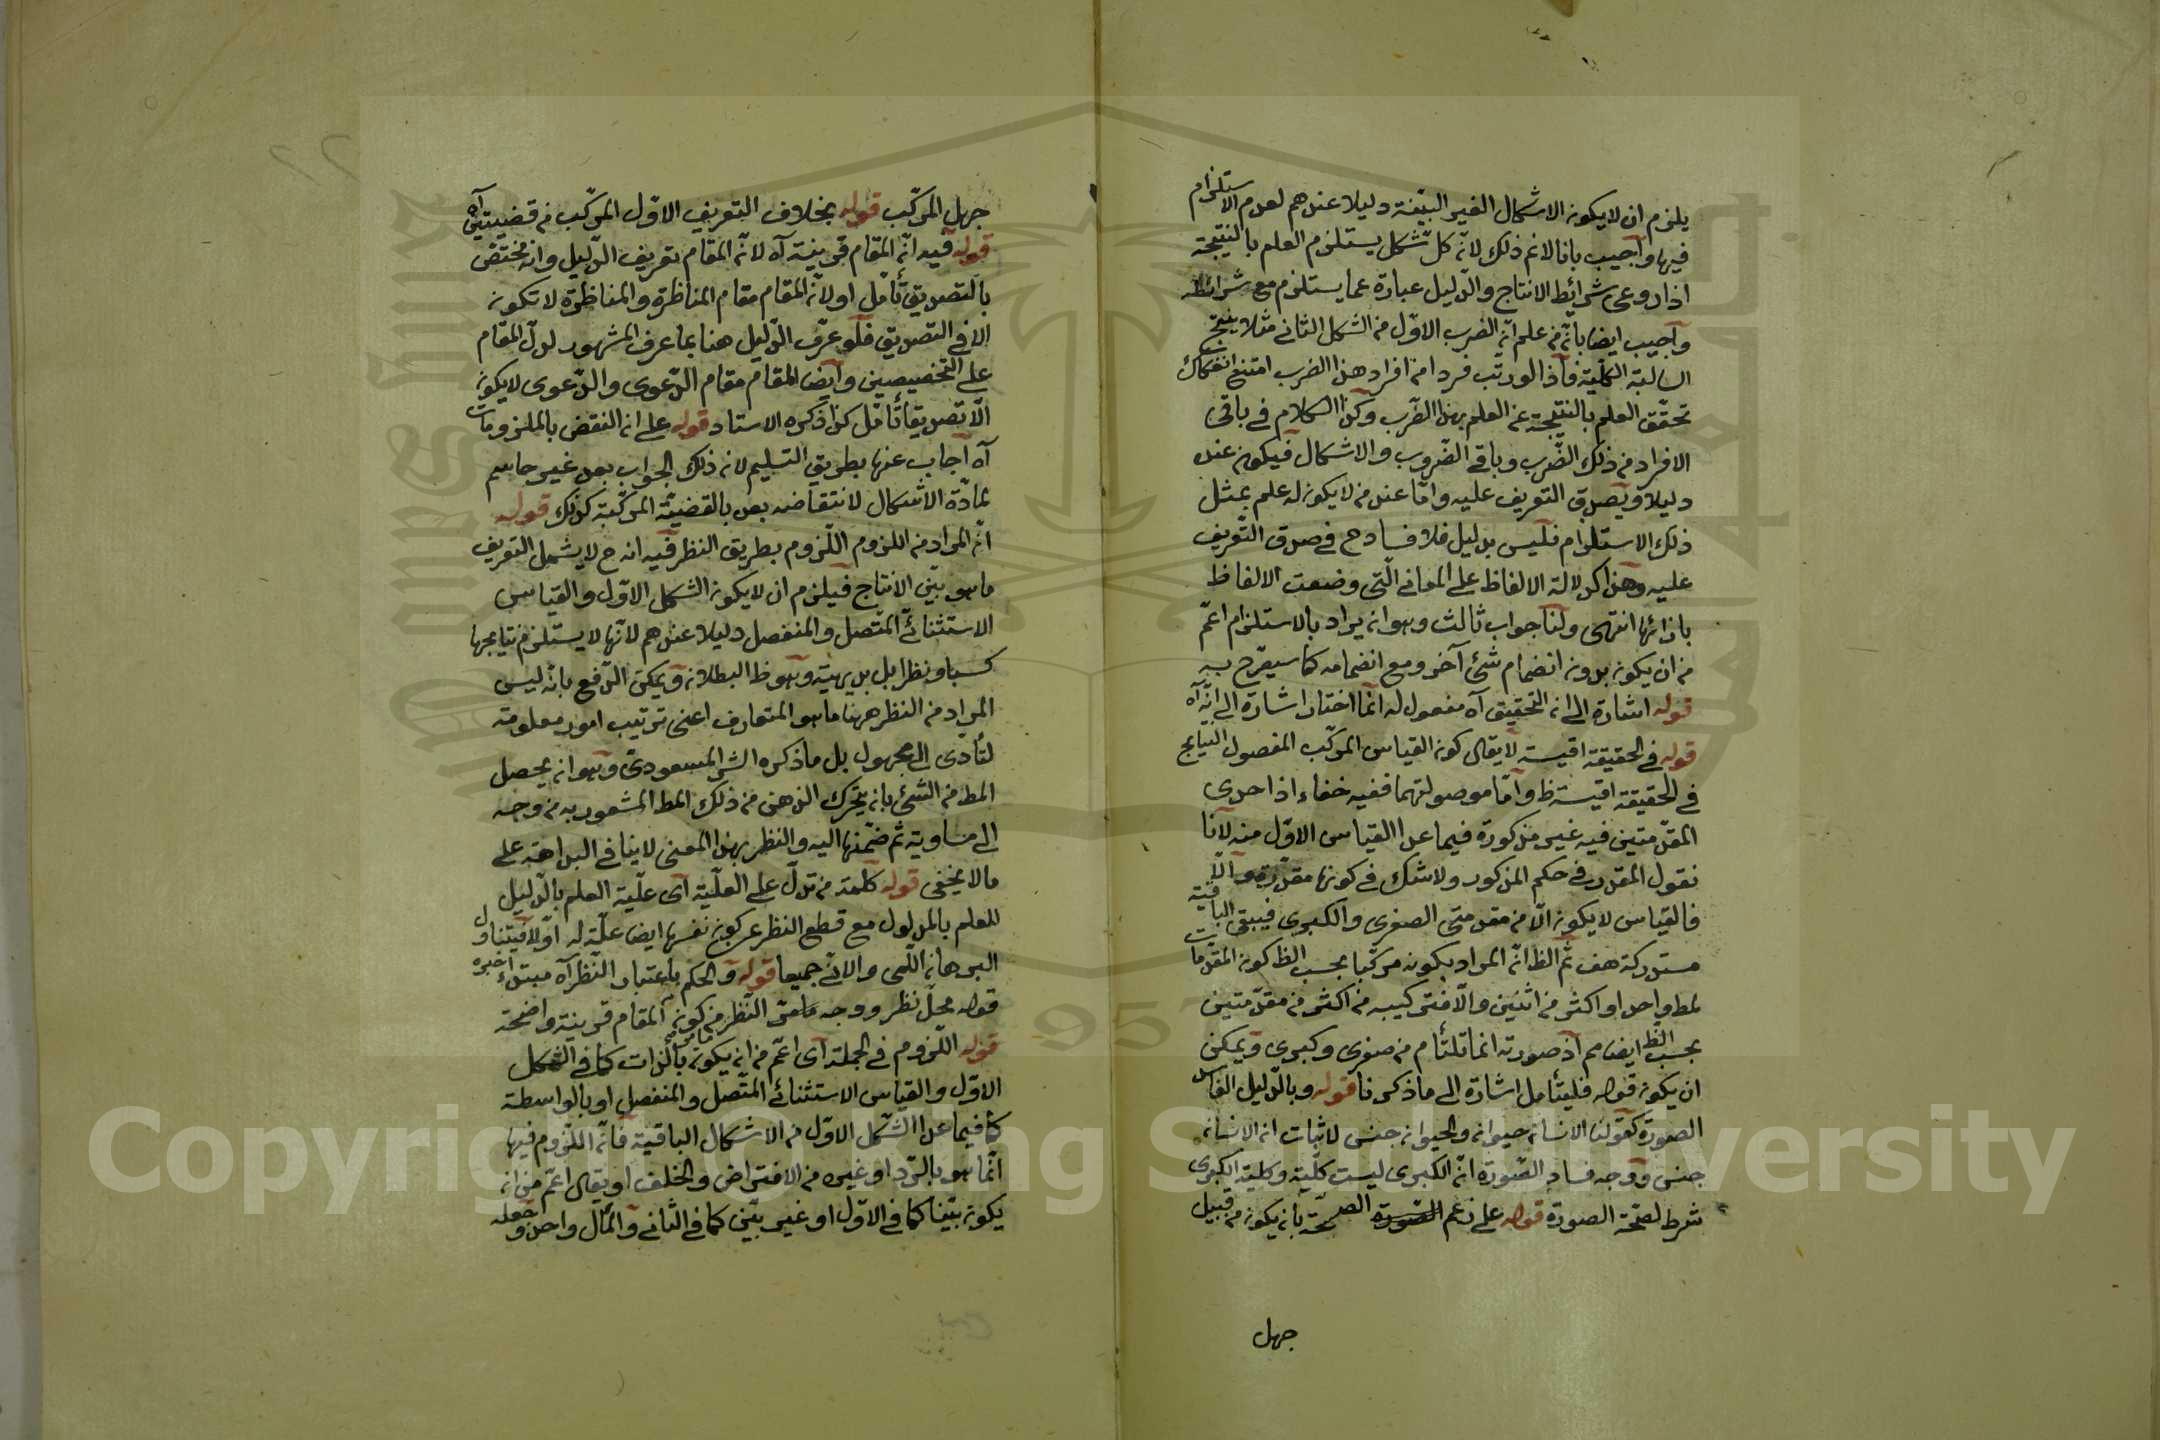 يلزم ان لا يكون الاشكال الغير البينة دليلا عندهم لعدم الاستلزام
فيها وأجيب بانا لانم ذلك لانه كل شكل يستلزم العلم بالنتيجة
اذا روعى شرائط الانتاج والدليل عبارة عما يستلزم مع شرائطه
وأجيب ايضا بانه من علم ان الضرب الاول من الشكل الثانى مثلا ينتج
السالبة الكلية فاذا لو رتب فردا من افراد هذا الضرب امتنع انفكاك
تحقق العلم بالنتيجة عن العلم بهذا الضرب وكذا الكلام فى باقى
الافراد من ذلك الضرب وباقى الضروب والاشكال فيكون عنده
دليلا ويصدق التعريف عليه واما عند من لا يكون له علم بمثل
ذلك الاستلزام فليس بدليل فلا فساد ح فى صدق التعريف
عليه وهذا كدلالة الالفاظ على المعانى التى وضعت الالفاظ
بازائها انتهى ولنا جواب ثالث وهو انه يراد بالاستلزام اعم
من ان يكون بدون انضمام شئ آخر ومع انضمامه كما سيصرح به
قوله اشارة الى ان التحقيق آه مفعول له انما اختار اشارة الى انه آه
قوله فى الحقيقة اقيسة لا يقال كون القياس المركب المفصول النتايج
فى الحقيقة اقيسة ظ واما موصولتهما ففيه خفاء اذ احدى
المقدمتين فيه غير مذكورة فيما عدا القياس الاول منه لانا
نقول المقدر فى حكم المذكور ولا شك فى كونها مقدرة والا
فالقياس لا يكون الا من مقدمتى الصغرى والكبرى فيبقى الباقية
مستدركة هف ثم الظ ان المراد بكونه مركبا بحسب الظ كون المقدمات
لمط واحد او اكثر من اثنين والا فتركيبه من اكثر من مقدمتين
بحسب الظ ايضا مم اذ صورته انما تلتأم من صغرى وكبرى ويمكن
ان يكون قوله فليتأمل اشارة الى ما ذكرنا قوله وبالدليل الفاسد
الصورة كقولنا الانسان حيوان والحيوان جنس لاثبات ان الانسان
جنس ووجه فساد الصورة ان الكبرى ليست كلية وكلية الكبرى
شرط لصحة الصورة قوله على زعم الصحة بان يكون من قبيل
جهل
جهل المركب قوله بخلاف التعريف الاول المركب من قضيتين آه
قوله فيه ان المقام قرينة آه لان المقام تعريف الدليل وانه مختص
بالتصديق تأمل او لان المقام مقام المناظرة والمناظرة لا تكون
الا فى التصديق فلو عرف الدليل هنا بما عرف المشهور لدل المقام
على التخصيصين وايضا المقام مقام الدعوى والدعوى لا يكون
الا تصديقا تأمل كذا ذكره الاستاد قوله على ان النقض بالملزومات
آه اجاب عنها بطريق التسليم لان ذلك الجواب بعد غير حاسم
لمادة الاشكال لانتقاضه بعد بالقضية المركبة كذلك قوله
ان المراد من اللزوم اللزوم بطريق النظر فيه انه ح لا يشمل التعريف
ما هو بين الانتاج فيلزم ان لا يكون الشكل الاول والقياس
الاستثنائى المتصل والمنفصل دليلا عندهم لانها لا يستلزم نتايجها
كسبا ونظرا بل بديهية وهو ظ البطلان ويمكن الدفع بانه ليس
المراد من النظر ههنا ما هو المتعارف اعنى ترتيب امور معلومة
لتأدى الى مجهول بل ما ذكره الش المسعودى وهو انه يحصل
المط من الشئ بان يتحرك الذهن من ذلك المط المشعور به من وجه
الى مناويه ثم ضمنها اليه والنظر بهذا المعنى لا ينافى البداهة على
ما لا يخفى قوله كلمة من تدل على العلية اى علية العلم بالدليل
للعلم بالمدلول مع قطع النظر عن كون نفسها ايضا علة له اولا فيتناول
البرهان اللمى والانى جميعا قوله والحكم باعتبار النظر آه مبتداء خبره
قوله محل نظر ووجه النظر من كون المقام قرينة واضحة
قوله اللزوم فى الجملة اى اعم من ان يكون بالذات كما فى الشكل
الاول والقياس الاستثنائى المتصل والمنفصل او بالواسطة
كما فيما عدا الشكل الاول من الاشكال الباقية فان اللزوم فيها
انما هو بالرد او غيره من الافتراض والخلف او يقال اعم من ان
يكون بينا كما فى الاول او غير بين كما فى الثانى والمآل واحد وجعله
Copyright © King Saud University